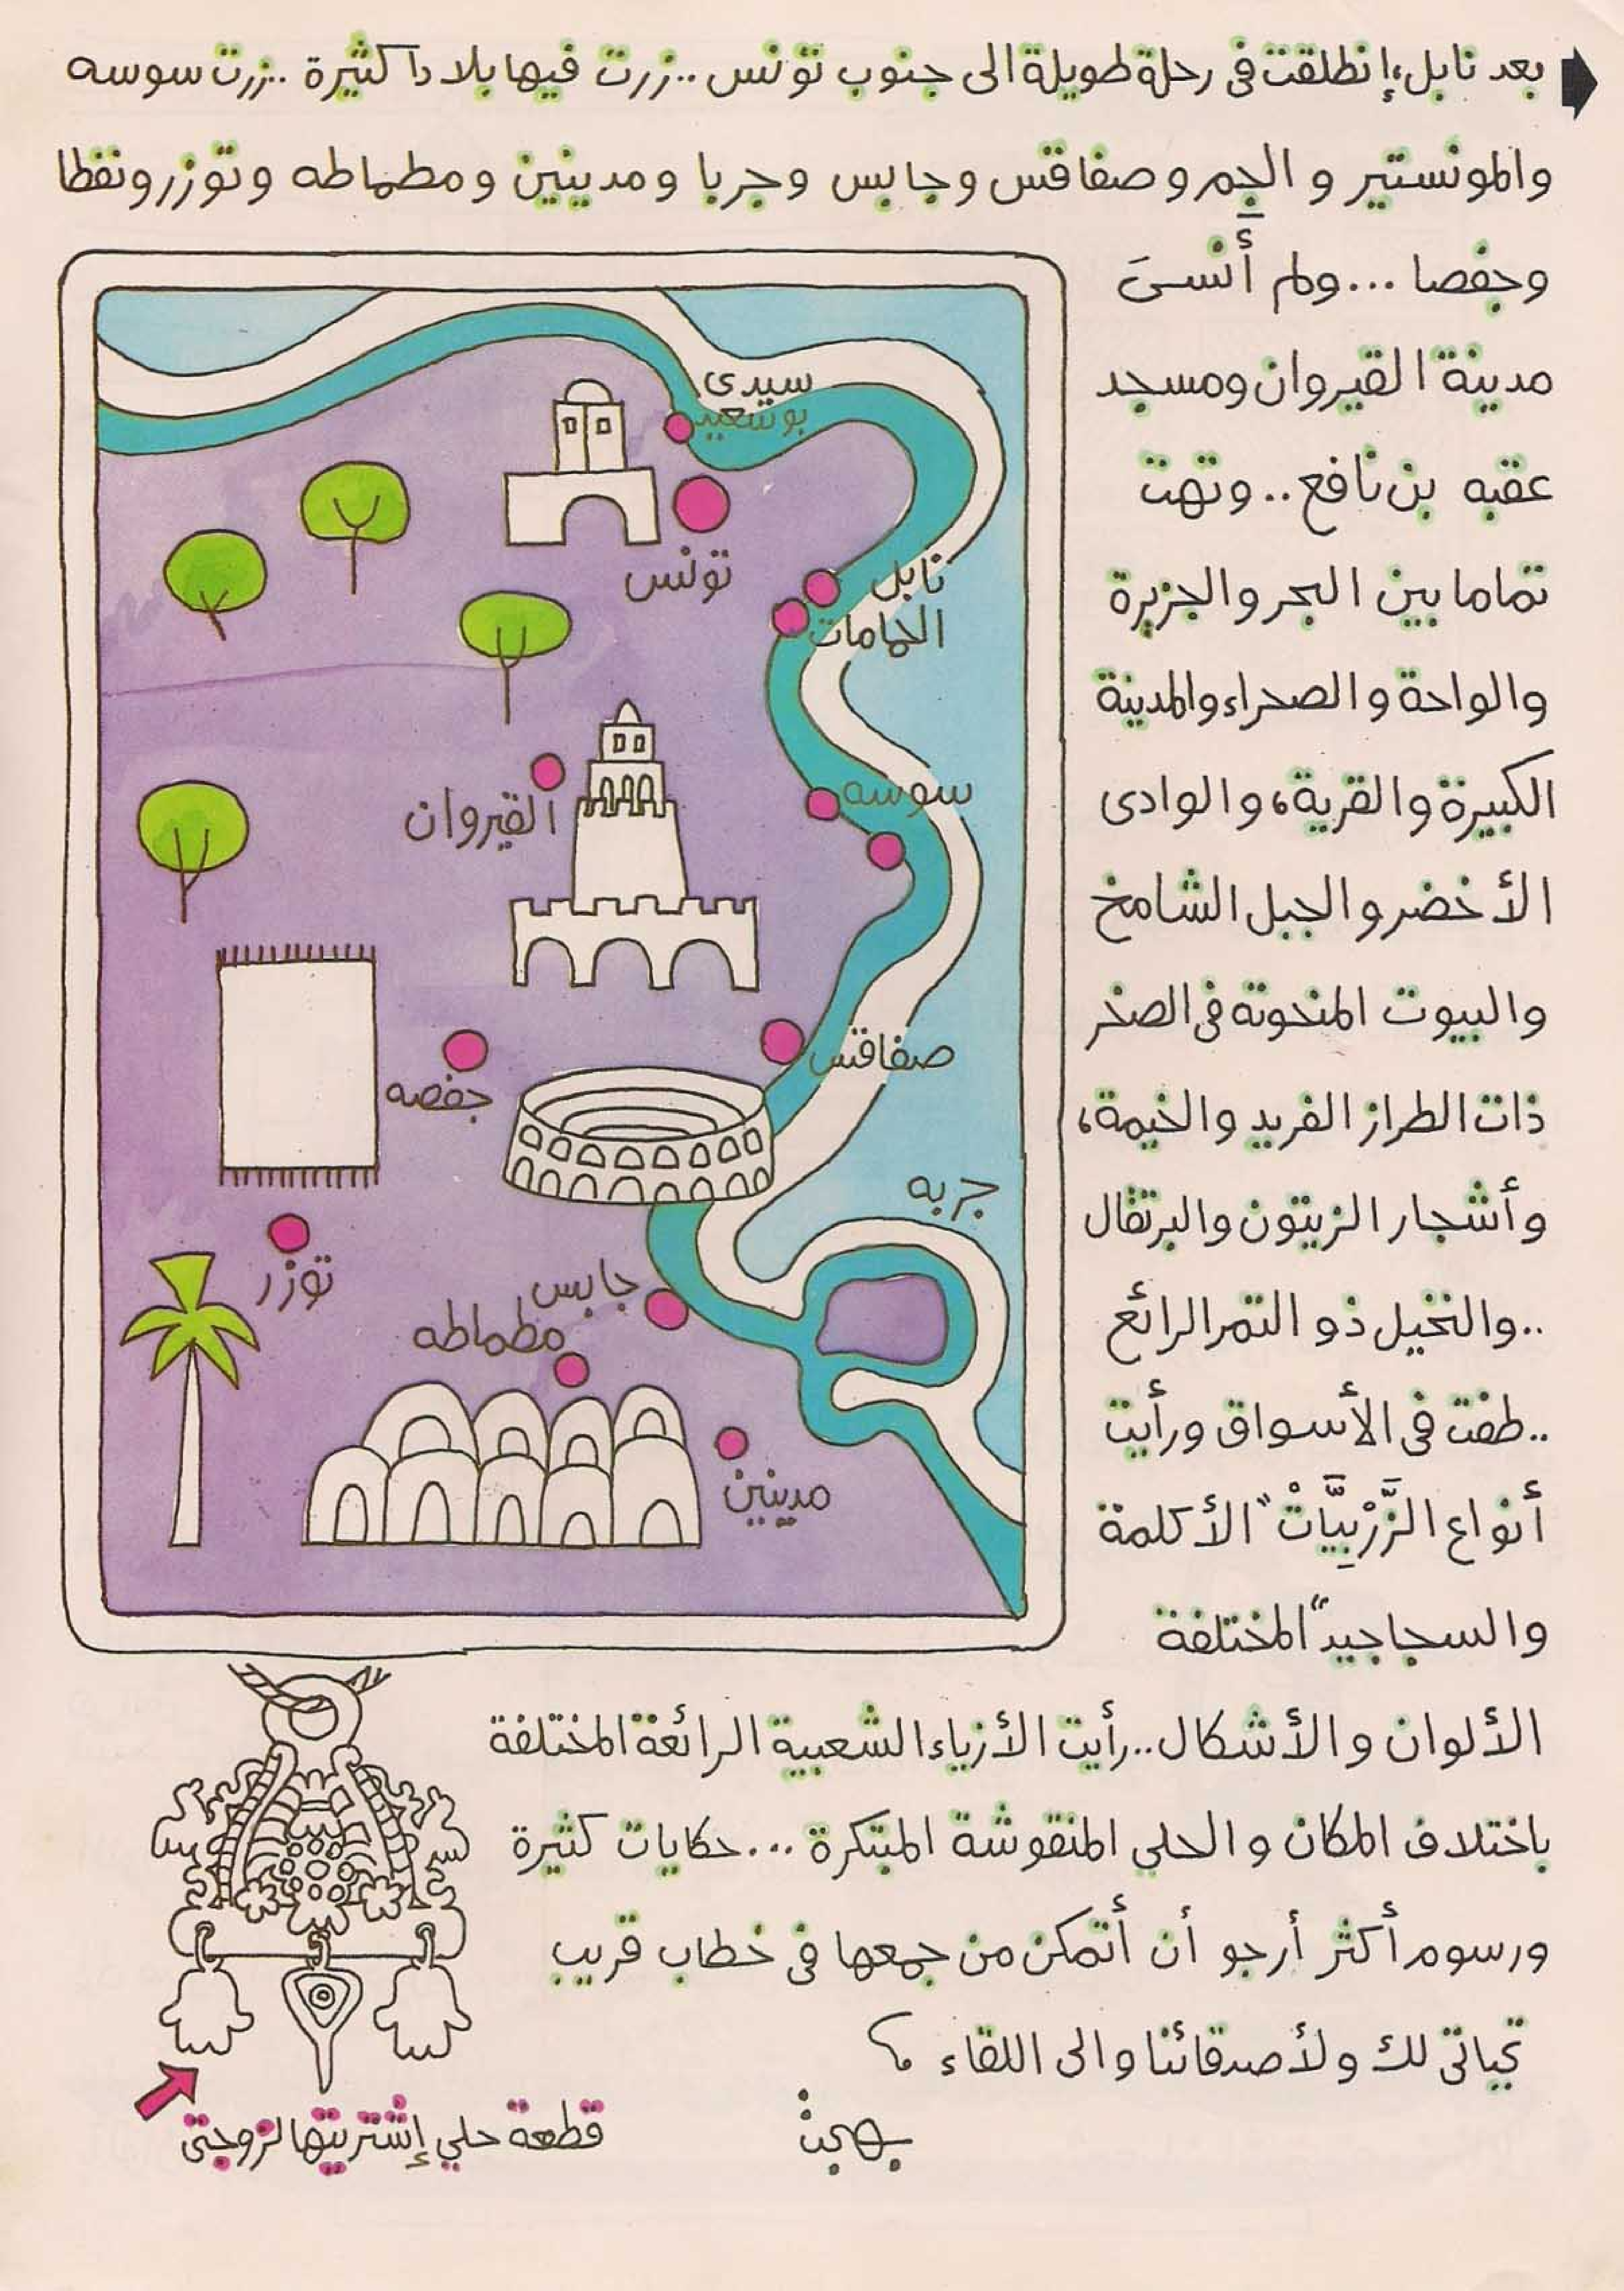 بعد نابل، إنطلقت فى رحلة طويلة الى جنوب تونس .. زرت فيها بلادا كثيرة .. زرت سوسه
والمونستير و الجم و صفاقس وجابس وجربا ومدينين ومطماطه وتوزر ونفطا
وجفصا ... ولم أنسىَ
مدينة القيروان ومسجد
عقبه بن نافع .. وتهت
تماما بين البحر والجزيرة
والواحة و الصحراء والمدينة
الكبيرة والقرية، والوادى
الأخضر والجبل الشامخ
والبيوت المنحوتة فى الصخر
ذات الطراز الفريد والخيمة،
وأشجار الزيتون والبرتقال
.. والنخيل ذو التمر الرائع
.. طفت فى الأسواق ورأيت
أنواع الزَّرْبِيَّاتْ "الأكلمة
والسجاجيد" المختلفة
الألوان و الأشكال .. رأيت الأزياء الشعبية الرائعة المختلفة
باختلاف المكان و الحلي المنقوشة المبتكرة ... حكايات كثيرة
ورسوم أكثر أرجو أن أتمكن من جمعها فى خطاب قريب
تحياتى لك ولأصدقائنا والى اللقاء
بهجت
سيدى
بوسعيد
تونس
نابل
الحمامات
سوسه
القيروان
صفاقس
جفصه
جربه
توزر
جابس
مطماطه
مدينين
قطعة حلي إشتريتها لزوجتى